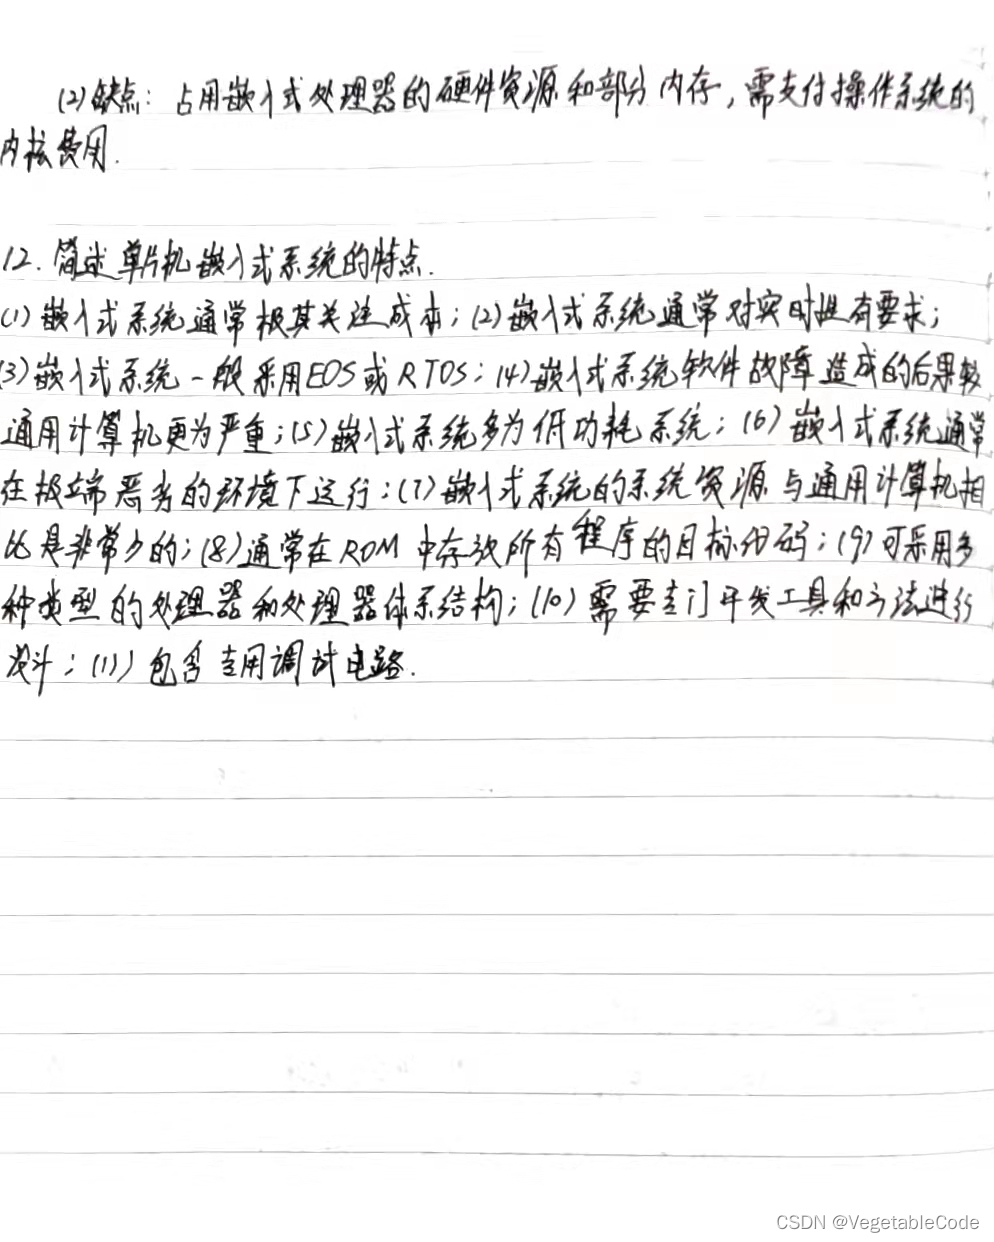 (2)缺点：占用嵌入式处理器的硬件资源和部分内存，需支付操作系统的
内核费用.
12.简述单片机嵌入式系统的特点.
(1)嵌入式系统通常极其关注成本；(2)嵌入式系统通常对实时性有要求；
(3)嵌入式系统一般采用EOS或RTOS；(4)嵌入式系统软件故障造成的后果较
通用计算机更为严重；(5)嵌入式系统多为低功耗系统；(6)嵌入式系统通常
在极端恶劣的环境下运行；(7)嵌入式系统的系统资源与通用计算机相
比是非常少的；(8)通常在ROM中存放所有程序的目标代码；(9)可采用多
种类型的处理器和处理器体系结构；(10)需要专门开发工具和方法进行
设计；(11)包含专用调试电路.
CSDN @VegetableCode